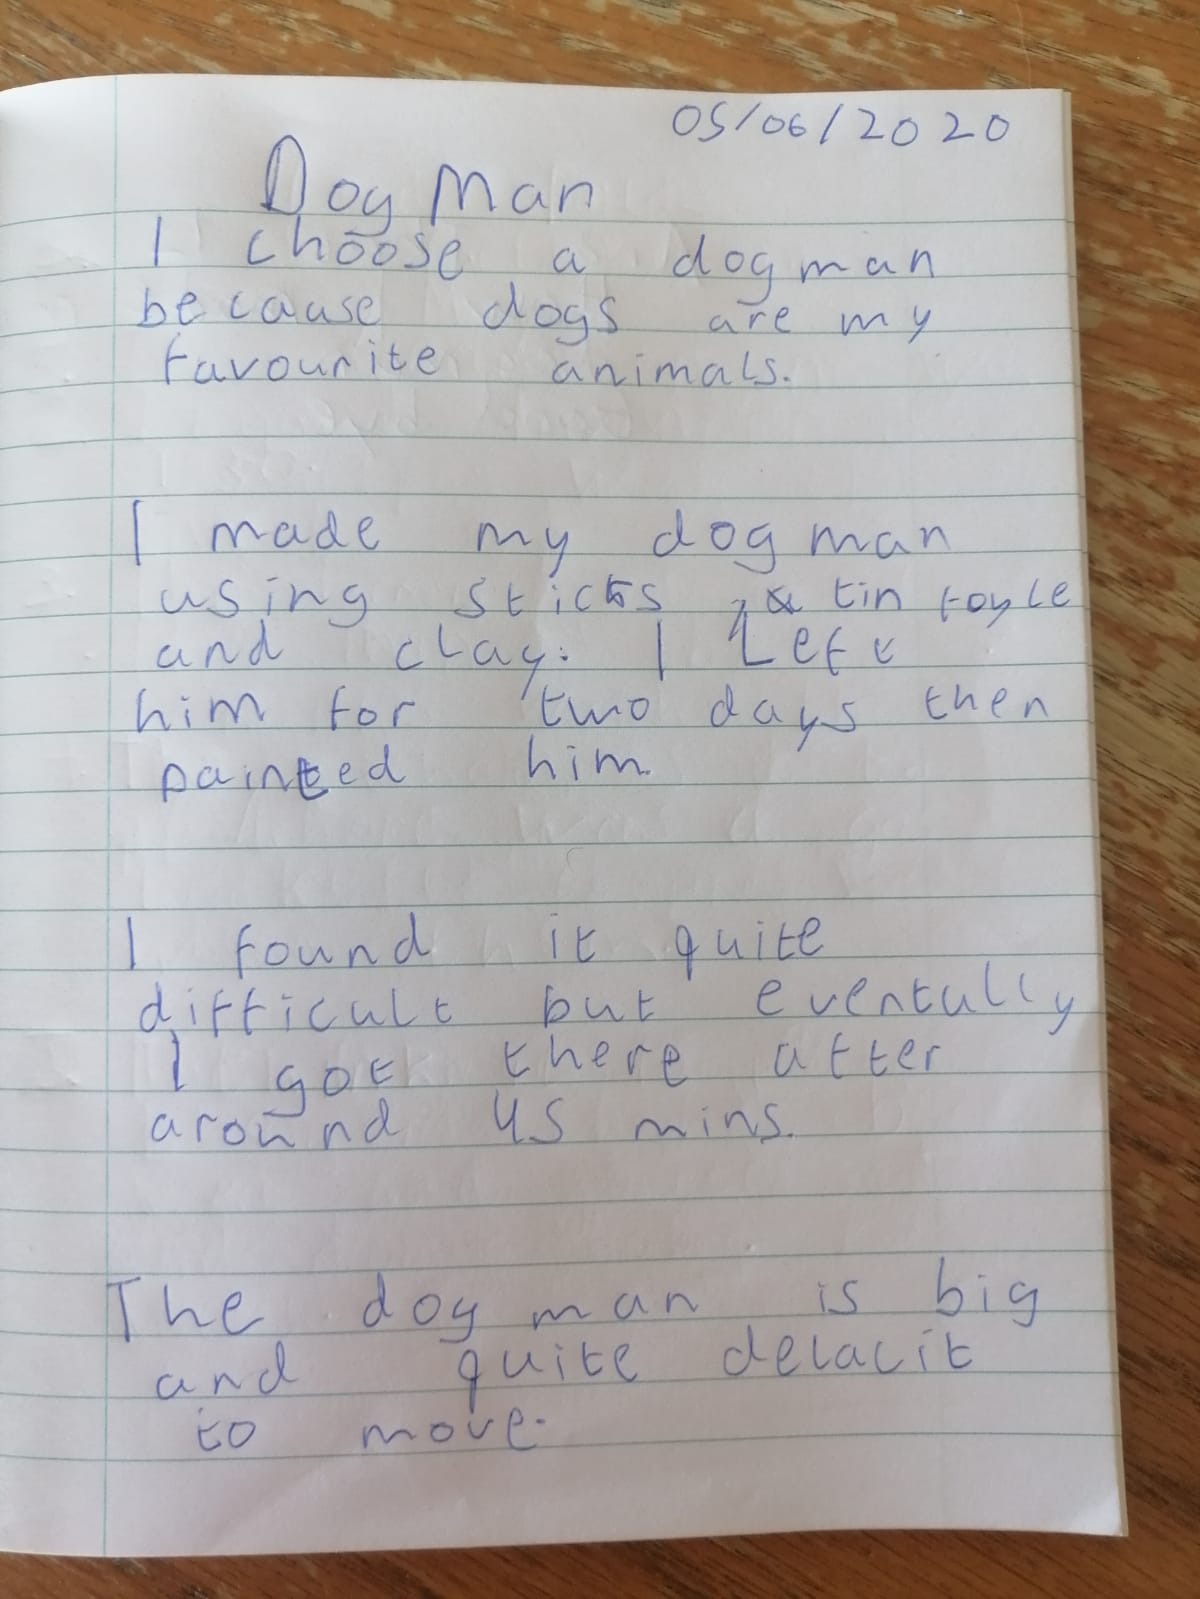 05/06/2020
Dog Man
I choose a dog man
because dogs are my
favourite animals.
I made my dog man
using sticks, & tin foyle
and clay. I Left
him for two days then
painted him.
I found it quite
difficult but eventully
I got there after
around 45 mins.
The dog man is big
and quite delacit
to move.